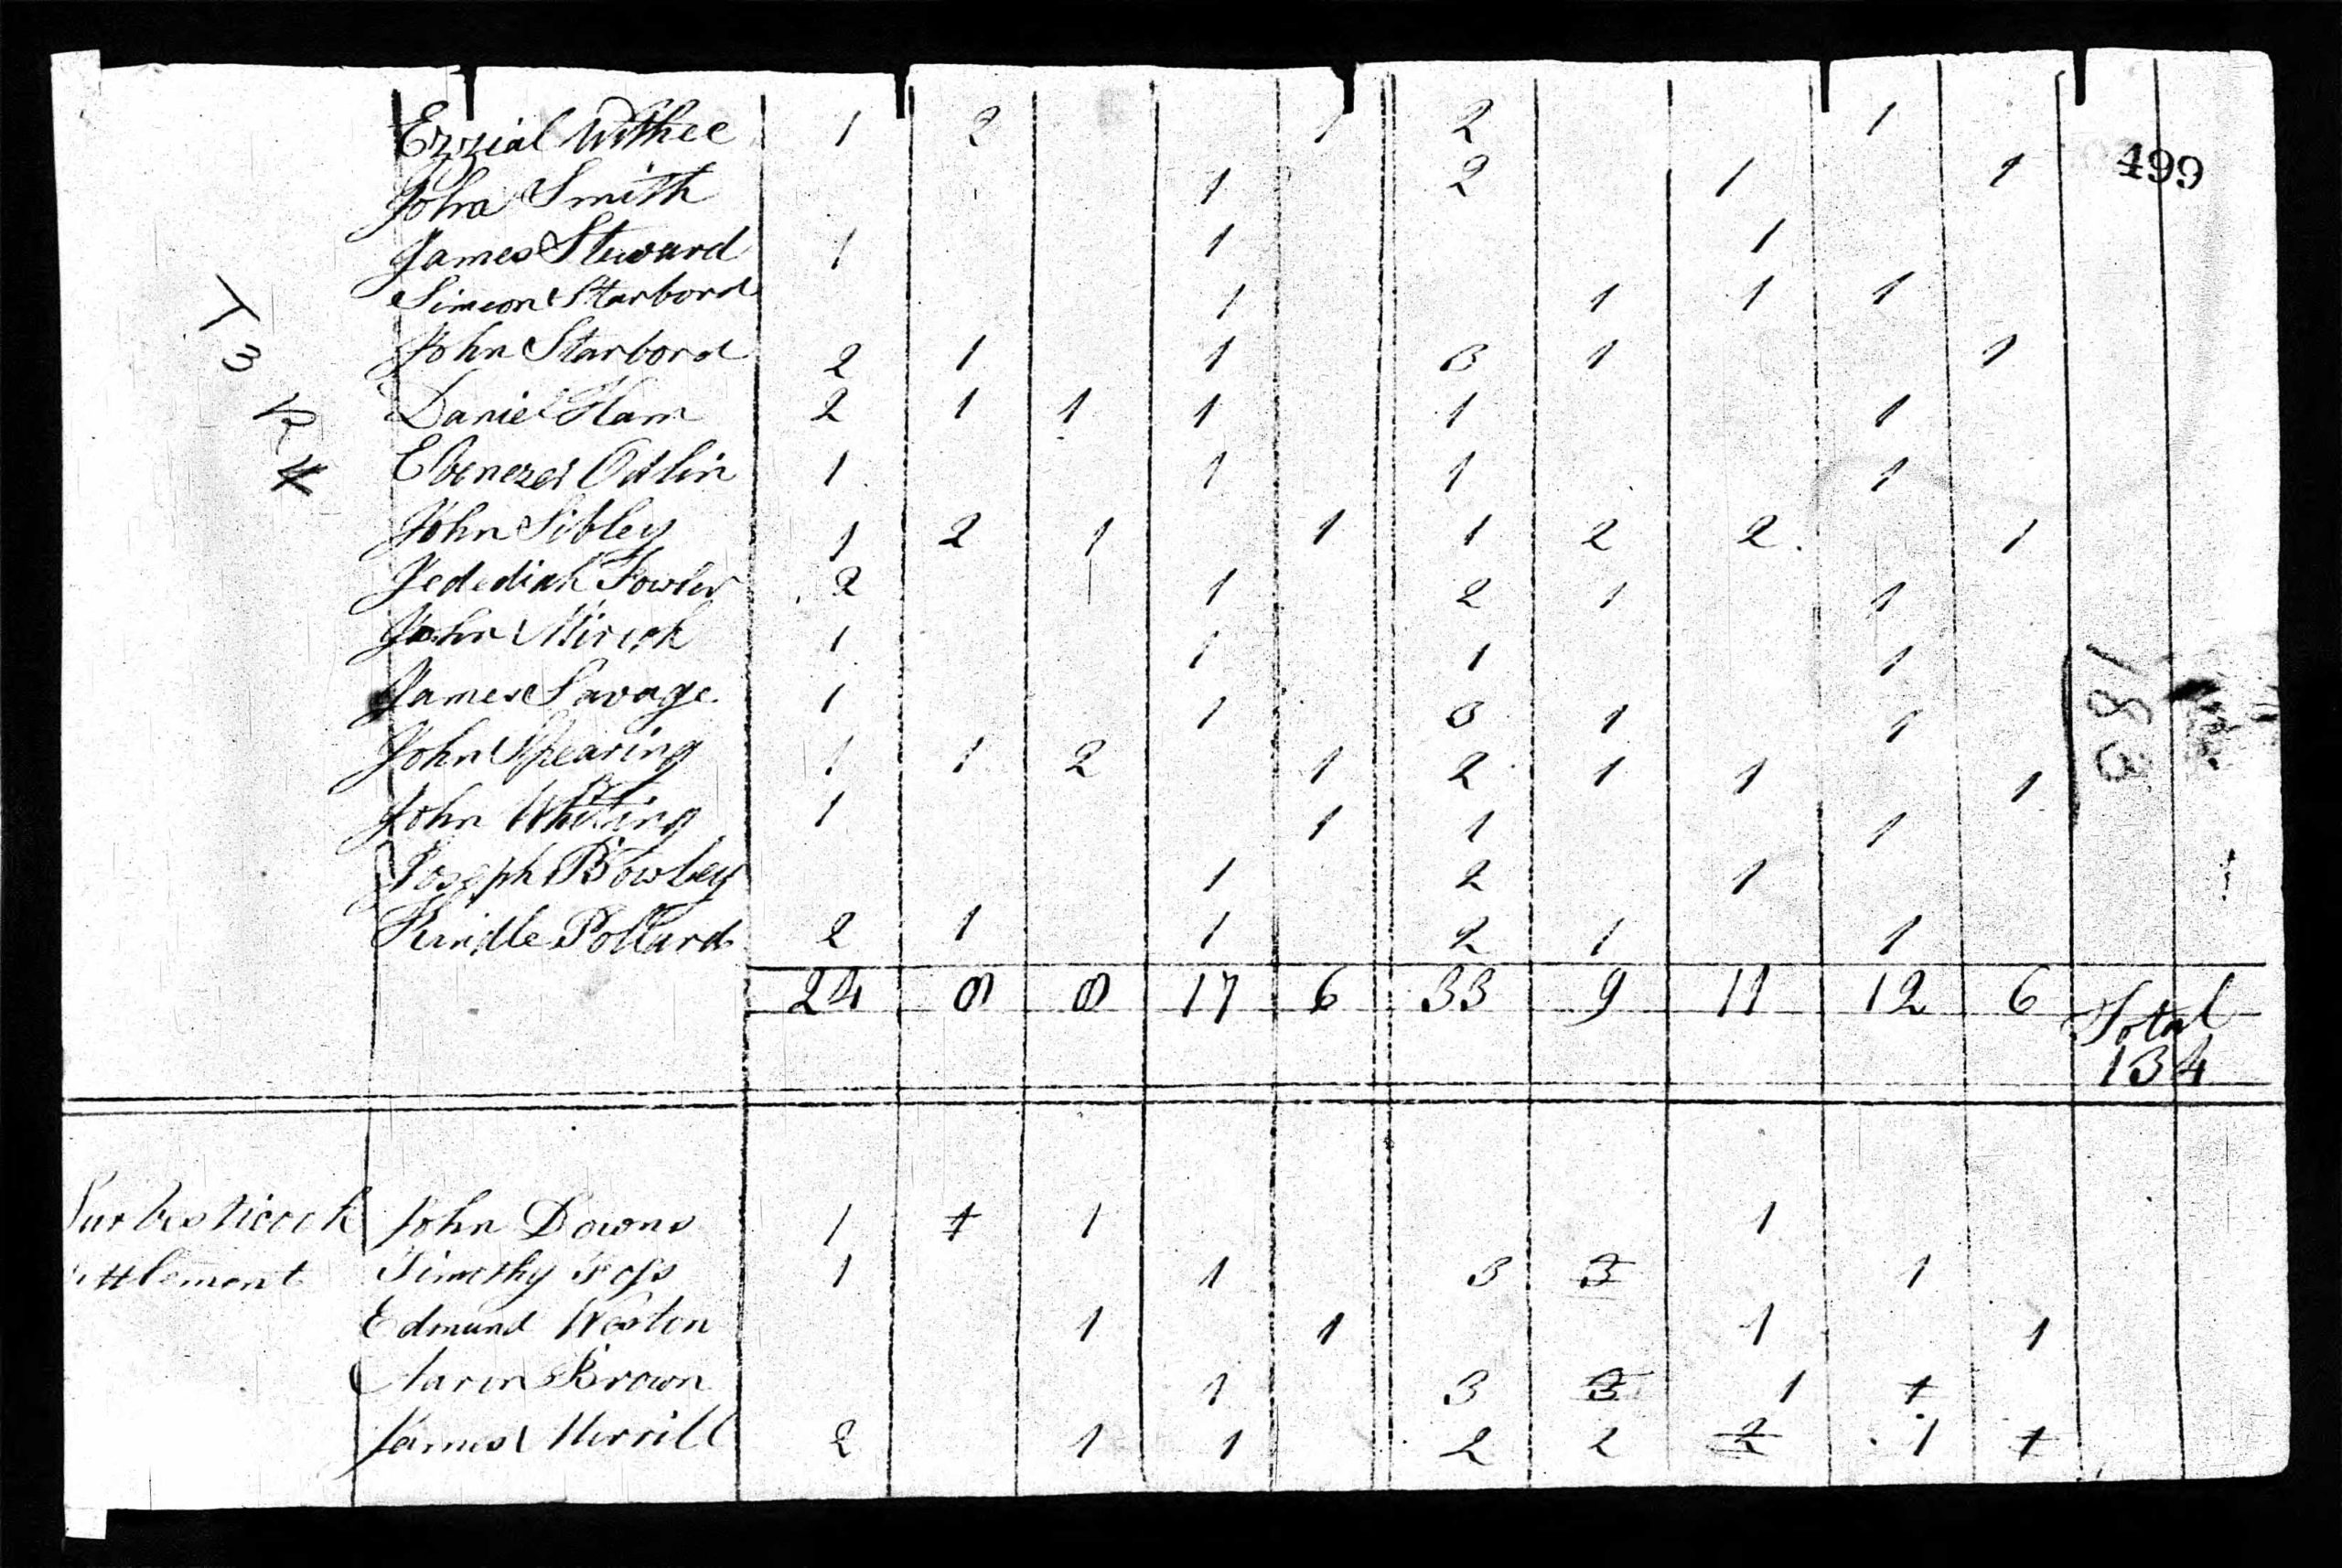 499
Ezzial Withee 1 2 1 2 1
John Smith 1 2 1 1
James Steward 1 1 1
Simeon Starbord 1 1 1 1
John Starbord 2 1 1 3 1 1
Daniel Ham 2 1 1 1 1 1
Ebenezer Odlin 1 1 1 1
John Sibley 1 2 1 1 1 2 2 1
Jedediah Fowler 2 1 2 1 1
John Mirick 1 1 1 1
James Savage 1 1 3 1 1
John Spearing 1 1 2 1 2 1 1 1
John Whiting 1 1 1 1
Joseph Bowley 1 2 1
Rindle Pollard 2 1 1 2 1 1
T 3 R 4
183
24 8 8 17 6 33 9 11 12 6 Total
134
John Downs 1 1 1 1
ttlement Timothy Foss 1 1 3 3 1
Edmund Weston 1 1 1 1
Aaron Brown 1 3 3 1 1
James Merrill 2 1 1 2 2 2 1 1